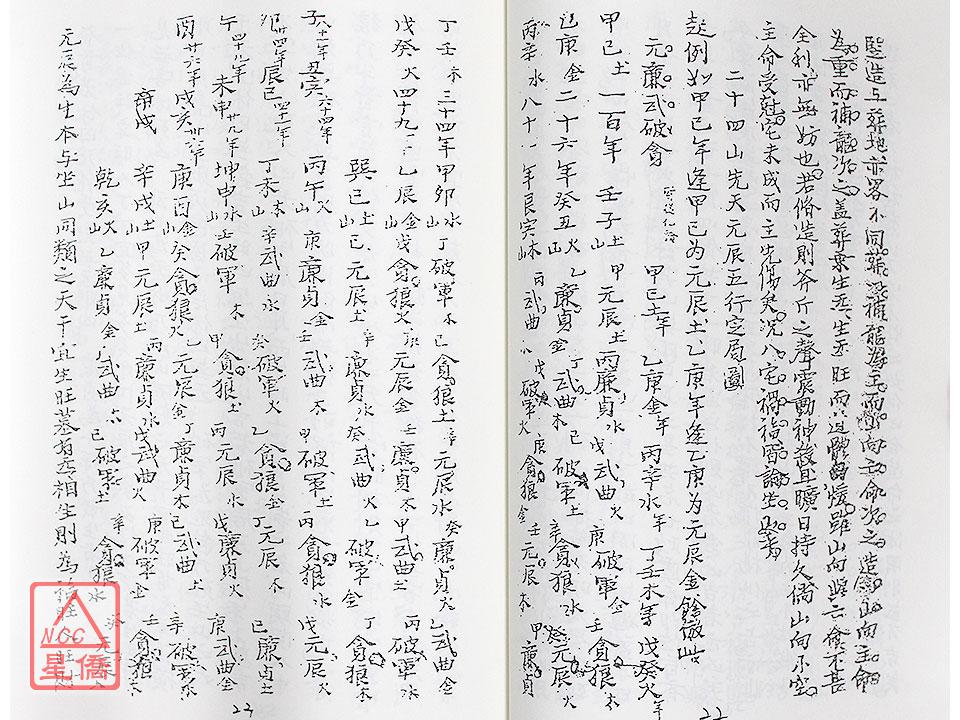 豎造与葬地亦畧不同葬以補龍為主而
為重而補龍次之蓋葬乗生炁生炁旺而
全利亦無妨也若脩造則斧斤之聲震動神殺且曠日持久倘山向不空
主命受尅宅未成而主先傷矣況八宅禍福所論坐
二十四山先天元辰五行定局圖
起例如甲己年逢甲己为元辰土乙庚年逢乙庚为元辰金餘倣此
元廉武破貪 甲己土年 乙庚金年 丙辛水年 丁壬木年 戊癸火年
甲己土一百年 壬子土山 甲元辰土 丙廉貞水 戊武曲火 庚破軍金 壬貪狼木
乙庚金二十六年 癸丑火山 乙廉貞金 丁武曲木 己破軍土 辛貪狼水 癸元辰火
丙辛水八十一年 艮寅木山 丙武曲水 戊破軍火 庚貪狼金 壬元辰木 甲廉貞
22
丁壬木三十四年 甲卯水山 丁破軍木 己貪狼土 辛元辰水 癸廉貞火 乙武曲金
戊癸火四十九 乙辰金山 戊貪狼火 元辰金 壬廉貞木 甲武曲土 丙破軍水
巽巳土山 己元辰土 辛廉貞水 癸武曲火 乙破軍金 丁貪狼木
子八十一年 丑寅六十四年 丙午火山 庚廉貞金 壬武曲木 甲破軍土 丙貪狼水 戊元辰火
卯廿四年 辰巳四十一年 丁未木山 辛武曲水 癸破軍火 乙貪狼金 丁元辰木 己廉貞土
午四十九年 未申廿九年 坤申水山 壬破軍木 甲貪狼土 丙元辰水 戊廉貞火 庚武曲金
酉廿六年 戌亥卅六年 庚酉金山 癸貪狼火 乙元辰金 丁廉貞木 己武曲土 辛破軍水
辛戌土山 甲元辰土 丙廉貞水 戊武曲火 庚破軍金 壬貪狼木
乾亥火山 乙廉貞金 丁武曲木 己破軍土 辛貪狼水 癸元辰火
元辰為生本与坐山同類之天干宜生旺墓有炁相生則為
23
NCC
星僑